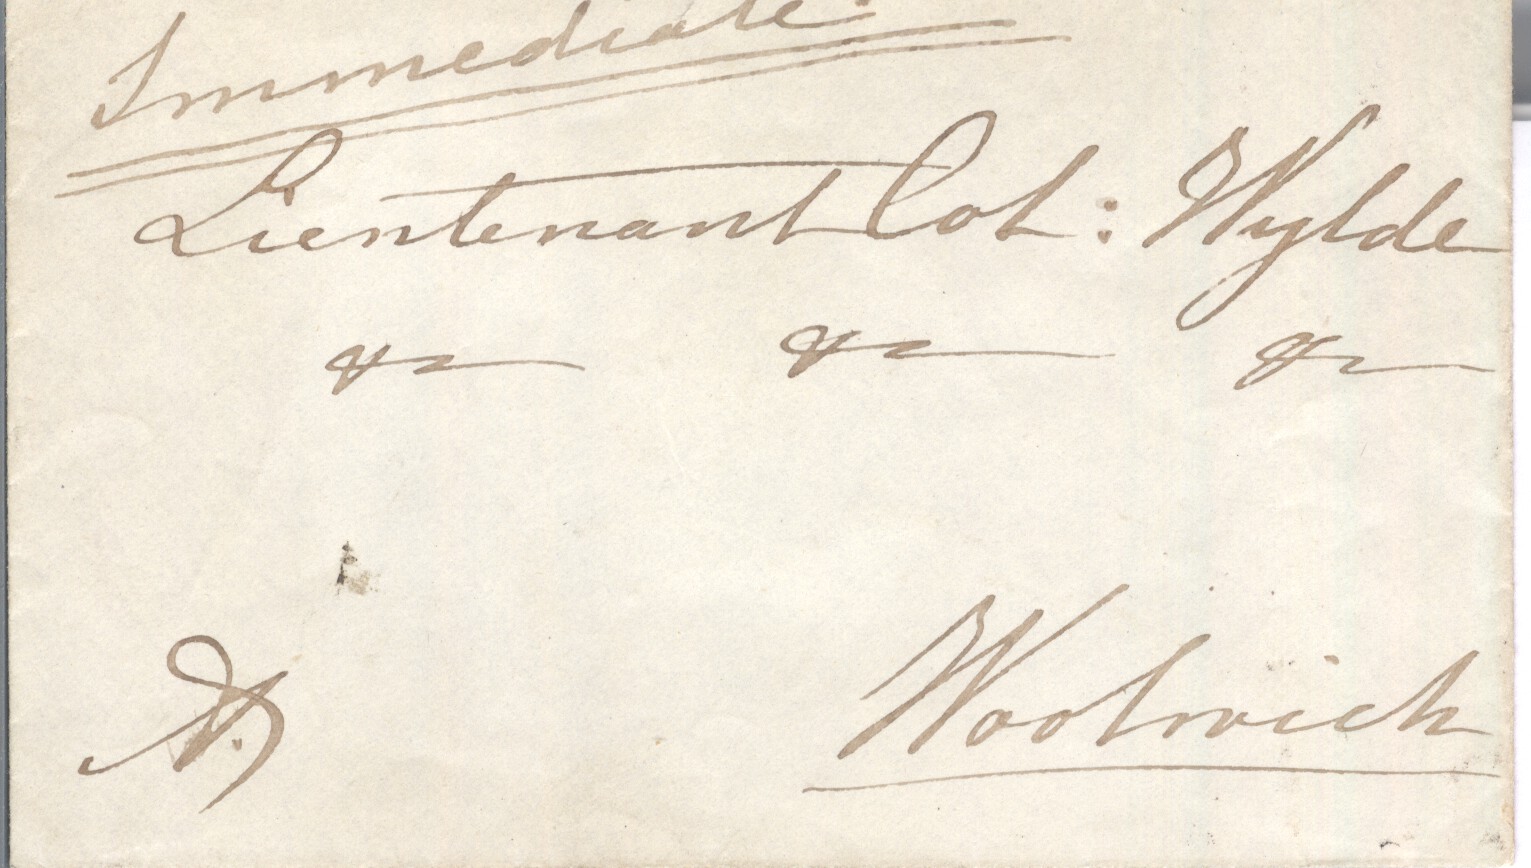 Immediate.
Lieutenant Col: Wylde
&c &c &c
Woolwich